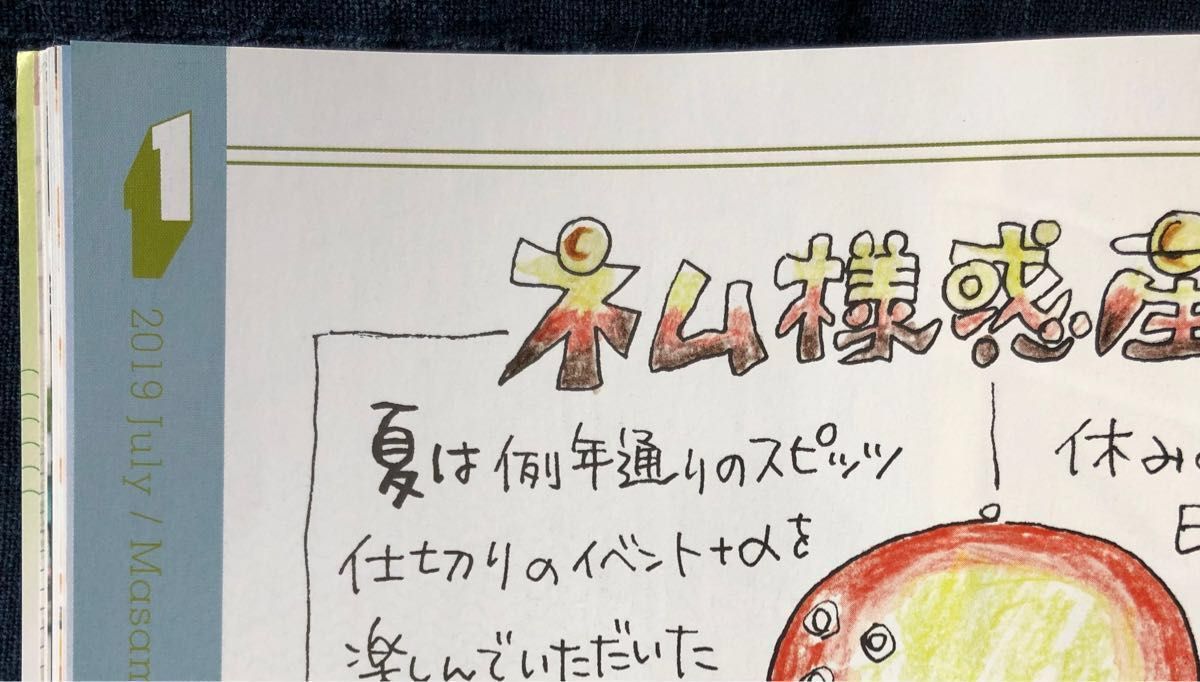 1
2019 July / Masam
ネム様惑星
夏は例年通りのスピッツ
仕切りのイベント+αを
楽しんでいただいた
休み